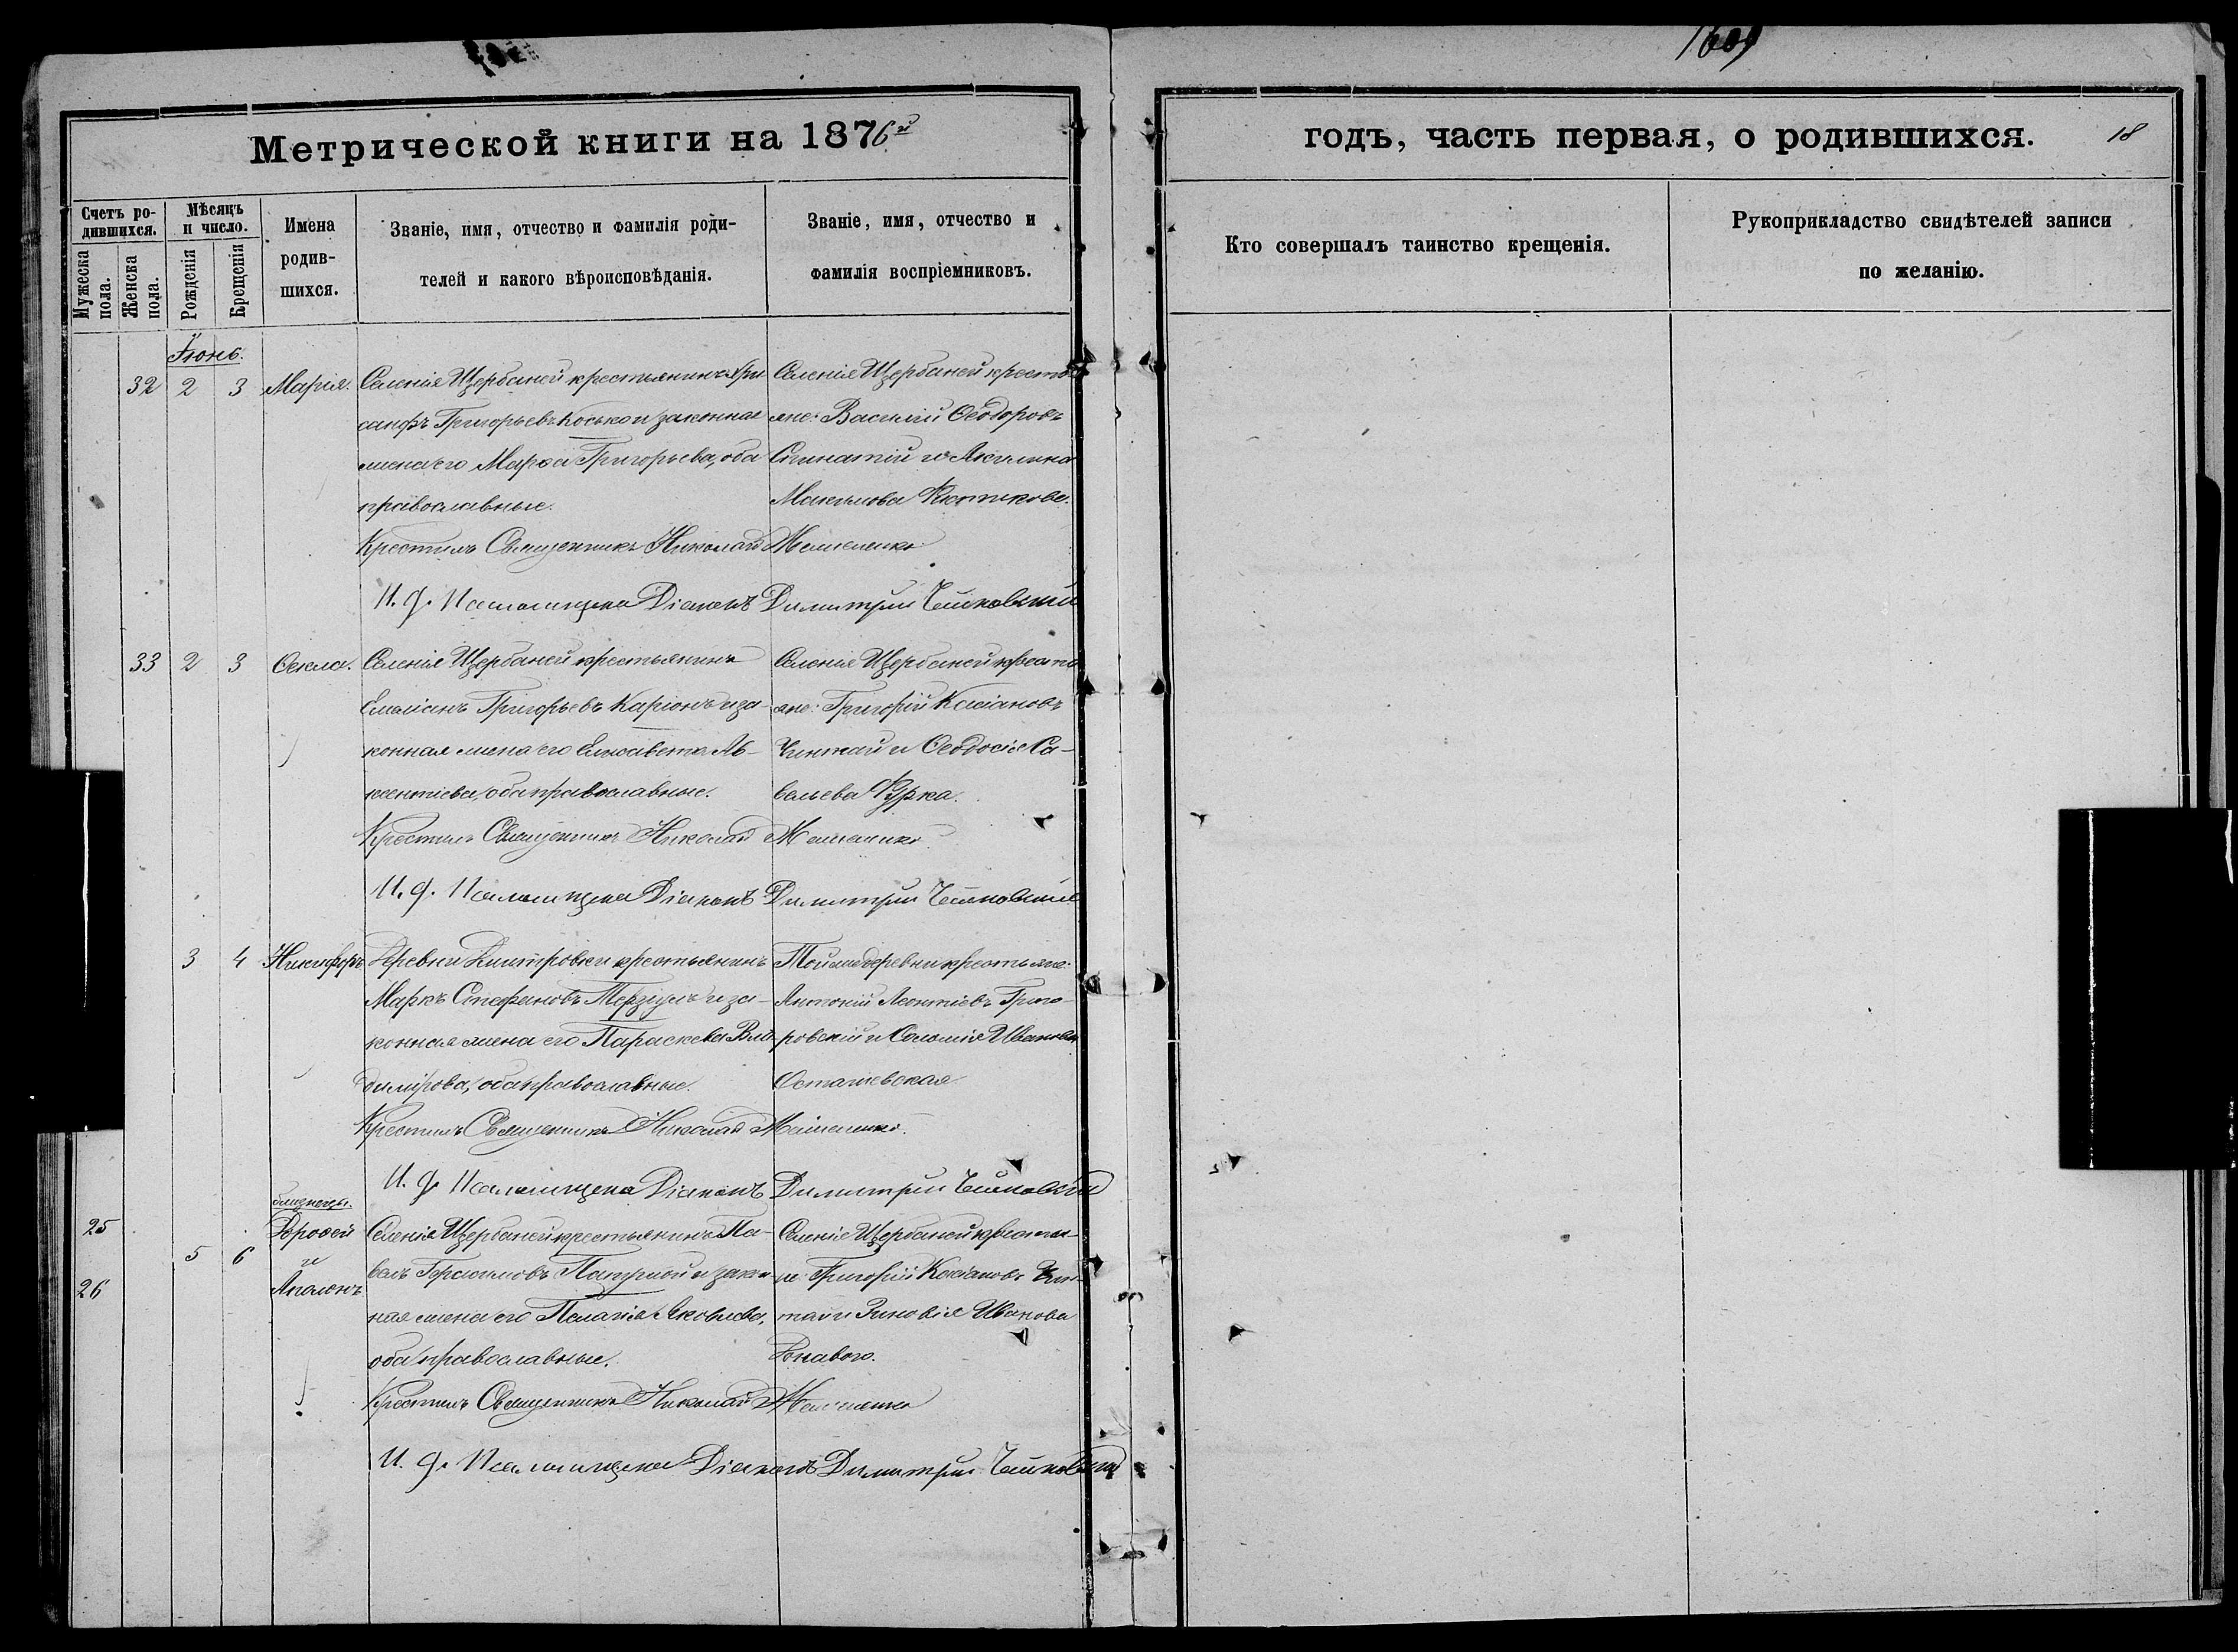 1609
Метрической книги на 1876й
годъ, часть первая, о родившихся.
18
Счетъ ро-
дившихся.
Мужеска
пола.
Женска
пола.
Мѣсяцъ
и число.
Рожденія
Крещенія
Имена
родив-
шихся.
Званіе, имя, отчество и фамилія роди-
телей и какого вѣроисповѣданія.
Званіе, имя, отчество и
фамилія воспріемниковъ.
Кто совершалъ таинство крещенія.
Рукоприкладство свидѣтелей записи
по желанію.
Іюнь.
32 2 3 Марія.
Селенія Щербаней крестьянинъ Хри
санфъ Григорьевъ Косько и законная
жена его Марѳа Григорьева, оба
православные.
Селенія Щербаней кресть
яне: Василій Ѳеодоровъ
Спинатій и Акилина
Максимова
Крестилъ Священникъ Николай
И. д. Псаломщика Діаконъ Димитрий
33 2 3 Ѳекла.
Селенія Щербаней крестьянинъ
Емеліанъ Григорьевъ Каріонъ и за-
конная жена его Елисавета Ав-
ксентіева, оба православные.
Селенія Щербаней кресть
яне: Григорій Касіановъ
Чинтай и Ѳеодосія Са-
вельева Фурка.
Крестилъ Священникъ Николай
И. д. Псаломщика Діаконъ Димитрий
3 4 Никифоръ
Деревни Дмитровки крестьянинъ
Маркъ Стефановъ Терзіулъ и за-
конная жена его Параскева Вла-
димірова, оба православные.
Той же деревни крестьяне:
Антоній Леонтіевъ Григо-
ровскій и Соломія Иванова
Осташевская
Крестилъ Священникъ Николай
И. д. Псаломщика Діаконъ Димитрий
близнецы.
25
26
5 6
Дороѳей
и
Аполонъ
Селенія Щербаней крестьянинъ Па-
велъ Герасимовъ и закон-
ная жена его Пелагія Яковлева,
оба православные.
Селенія Щербаней крестья-
не: Григорій Касіановъ Чин-
тай и Зиновія Иванова
Крестилъ Священникъ Николай
И. д. Псаломщика Діаконъ Димитрий